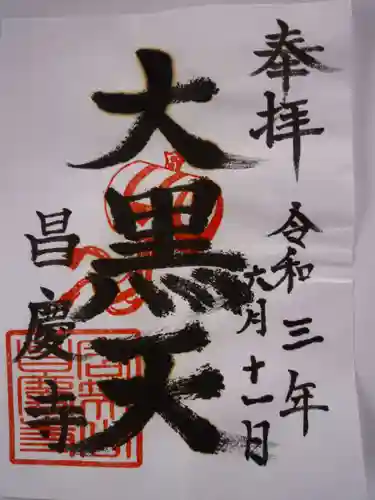 奉拝
令和三年
六月十一日
大黒天
昌慶寺